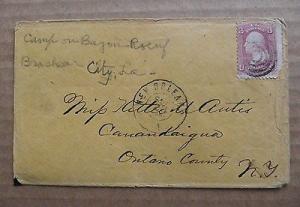 Camp on Bayou Boeuf
Brashear
City, La
NEW ORLEANS
Miss
Antis
Canandaigua
Ontario County
N.Y.
3 3